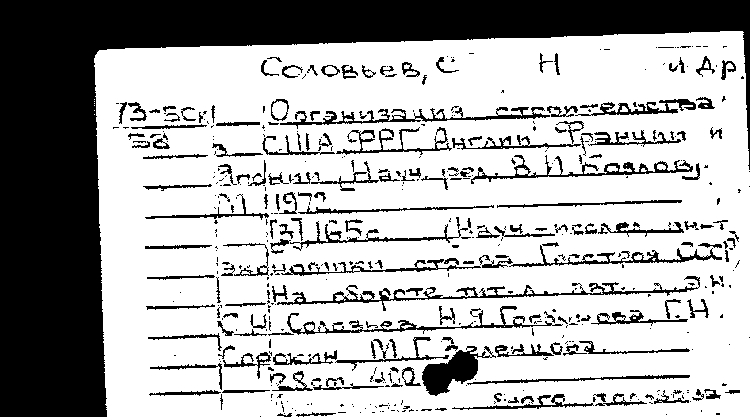 Соловьев, С Н и др.
73-5ск Организация строительства
58 в США, ФРГ, Англии, Франции и
Японии. Науч. ред. В. И. Козлов.
М. 1972
[3] 165 с. (Науч.-исслед. ин-т
экономики стр-ва Госстроя СССР)
На обороте тит. л. авт.
С. Н. Соловьев, Н. Я. Горбунова, Г. Н.
Сорокин, М. Г. Зеленцова.
28 cm. 400